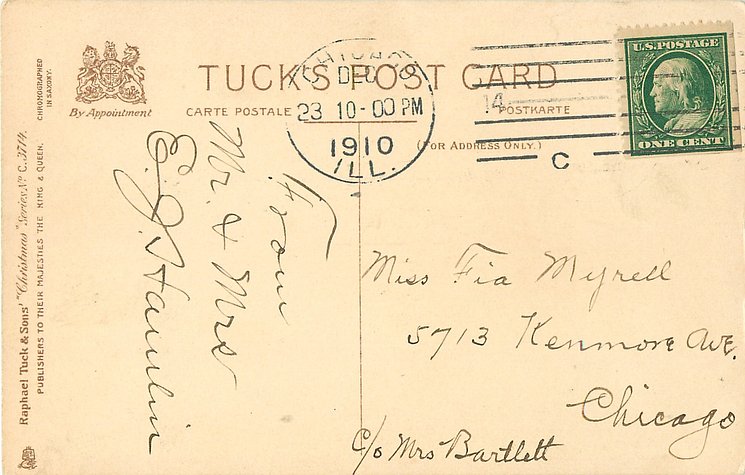 CHROMOGRAPHED
IN SAXONY.
By Appointment
TUCK'S POST CARD
CARTE POSTALE
POSTKARTE
(FOR ADDRESS ONLY.)
CHICAGO
DEC
23 10-00 PM
1910
ILL.
14
C
U.S. POSTAGE
ONE CENT
Raphael Tuck & Sons' "Christmas" Series No C. 3714.
PUBLISHERS TO THEIR MAJESTIES THE KING & QUEEN.
From
Mr. & Mrs
E. J. Hamlin
Miss Fia Myrell
5713 Kenmore Ave.
Chicago
c/o Mrs Bartlett